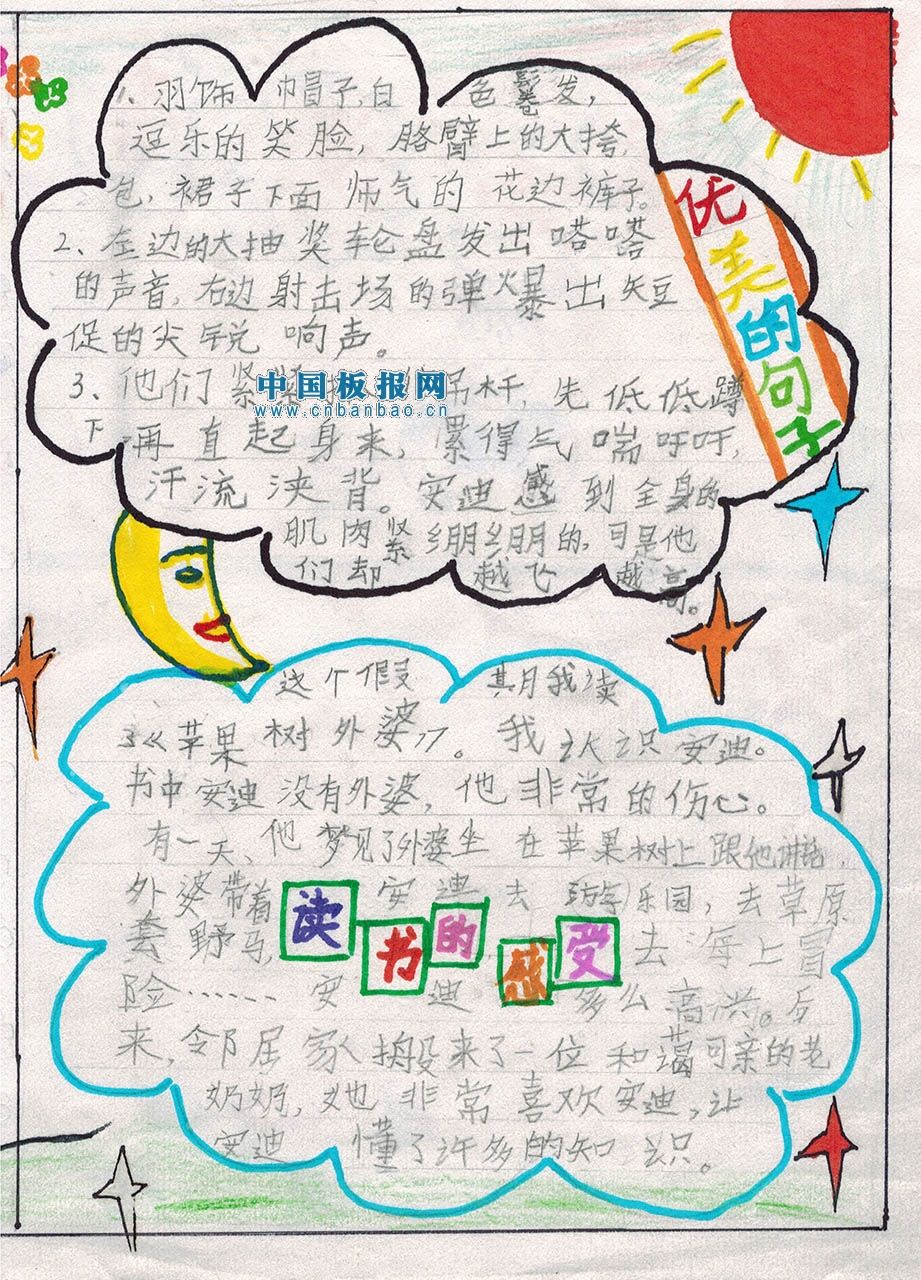 1、羽饰 巾冒子,白 色鬈发,
逗乐的笑脸,胳臂上的大挎
包,裙子下面 师气的 花边裤子。
2、左边的大抽奖轮盘发出嗒嗒
的声音,右边射击场的弹爆出矢豆
促的尖锐响声。
3、他们紧 吊杆,先低低蹲
下再直起身来,累得气喘吁吁,
汗流浃背。安迪感到全身的
肌肉紧绷绷的,可是他
们却 越飞 越高。
优美的句子
中国板报网
www.cnbanbao.cn
这个假 期我读
《苹果树外婆》。我认识安迪。
书中安迪没有外婆,他非常的伤心。
有一天、他梦见了外婆坐在苹果树上跟他讲
外婆带着 安迪去 乐园,去草原
套野马, 去海上冒
险…… 安 迪 多么高兴。后
来,邻居家搬来了一位和蔼可亲的老
奶奶,她非常喜欢安迪,让
安迪 懂了许多的知识。
读书的感受